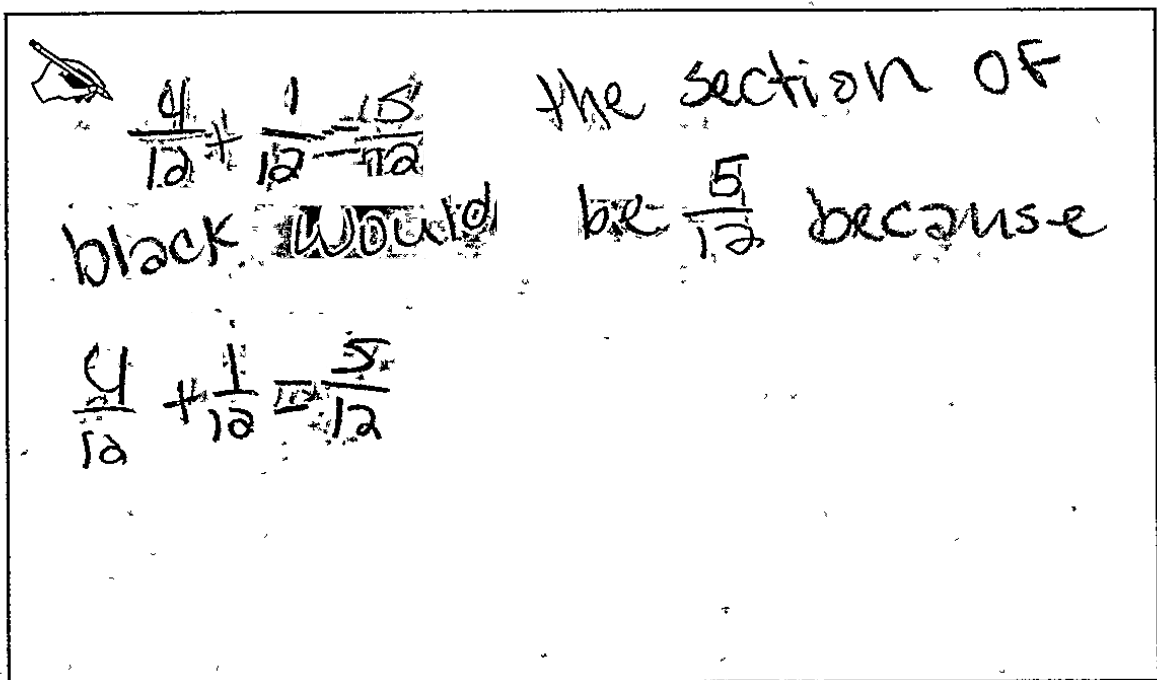 4/12 + 1/12 = 5/12 the section of
black would be 5/12 because
4/12 + 1/12 = 5/12